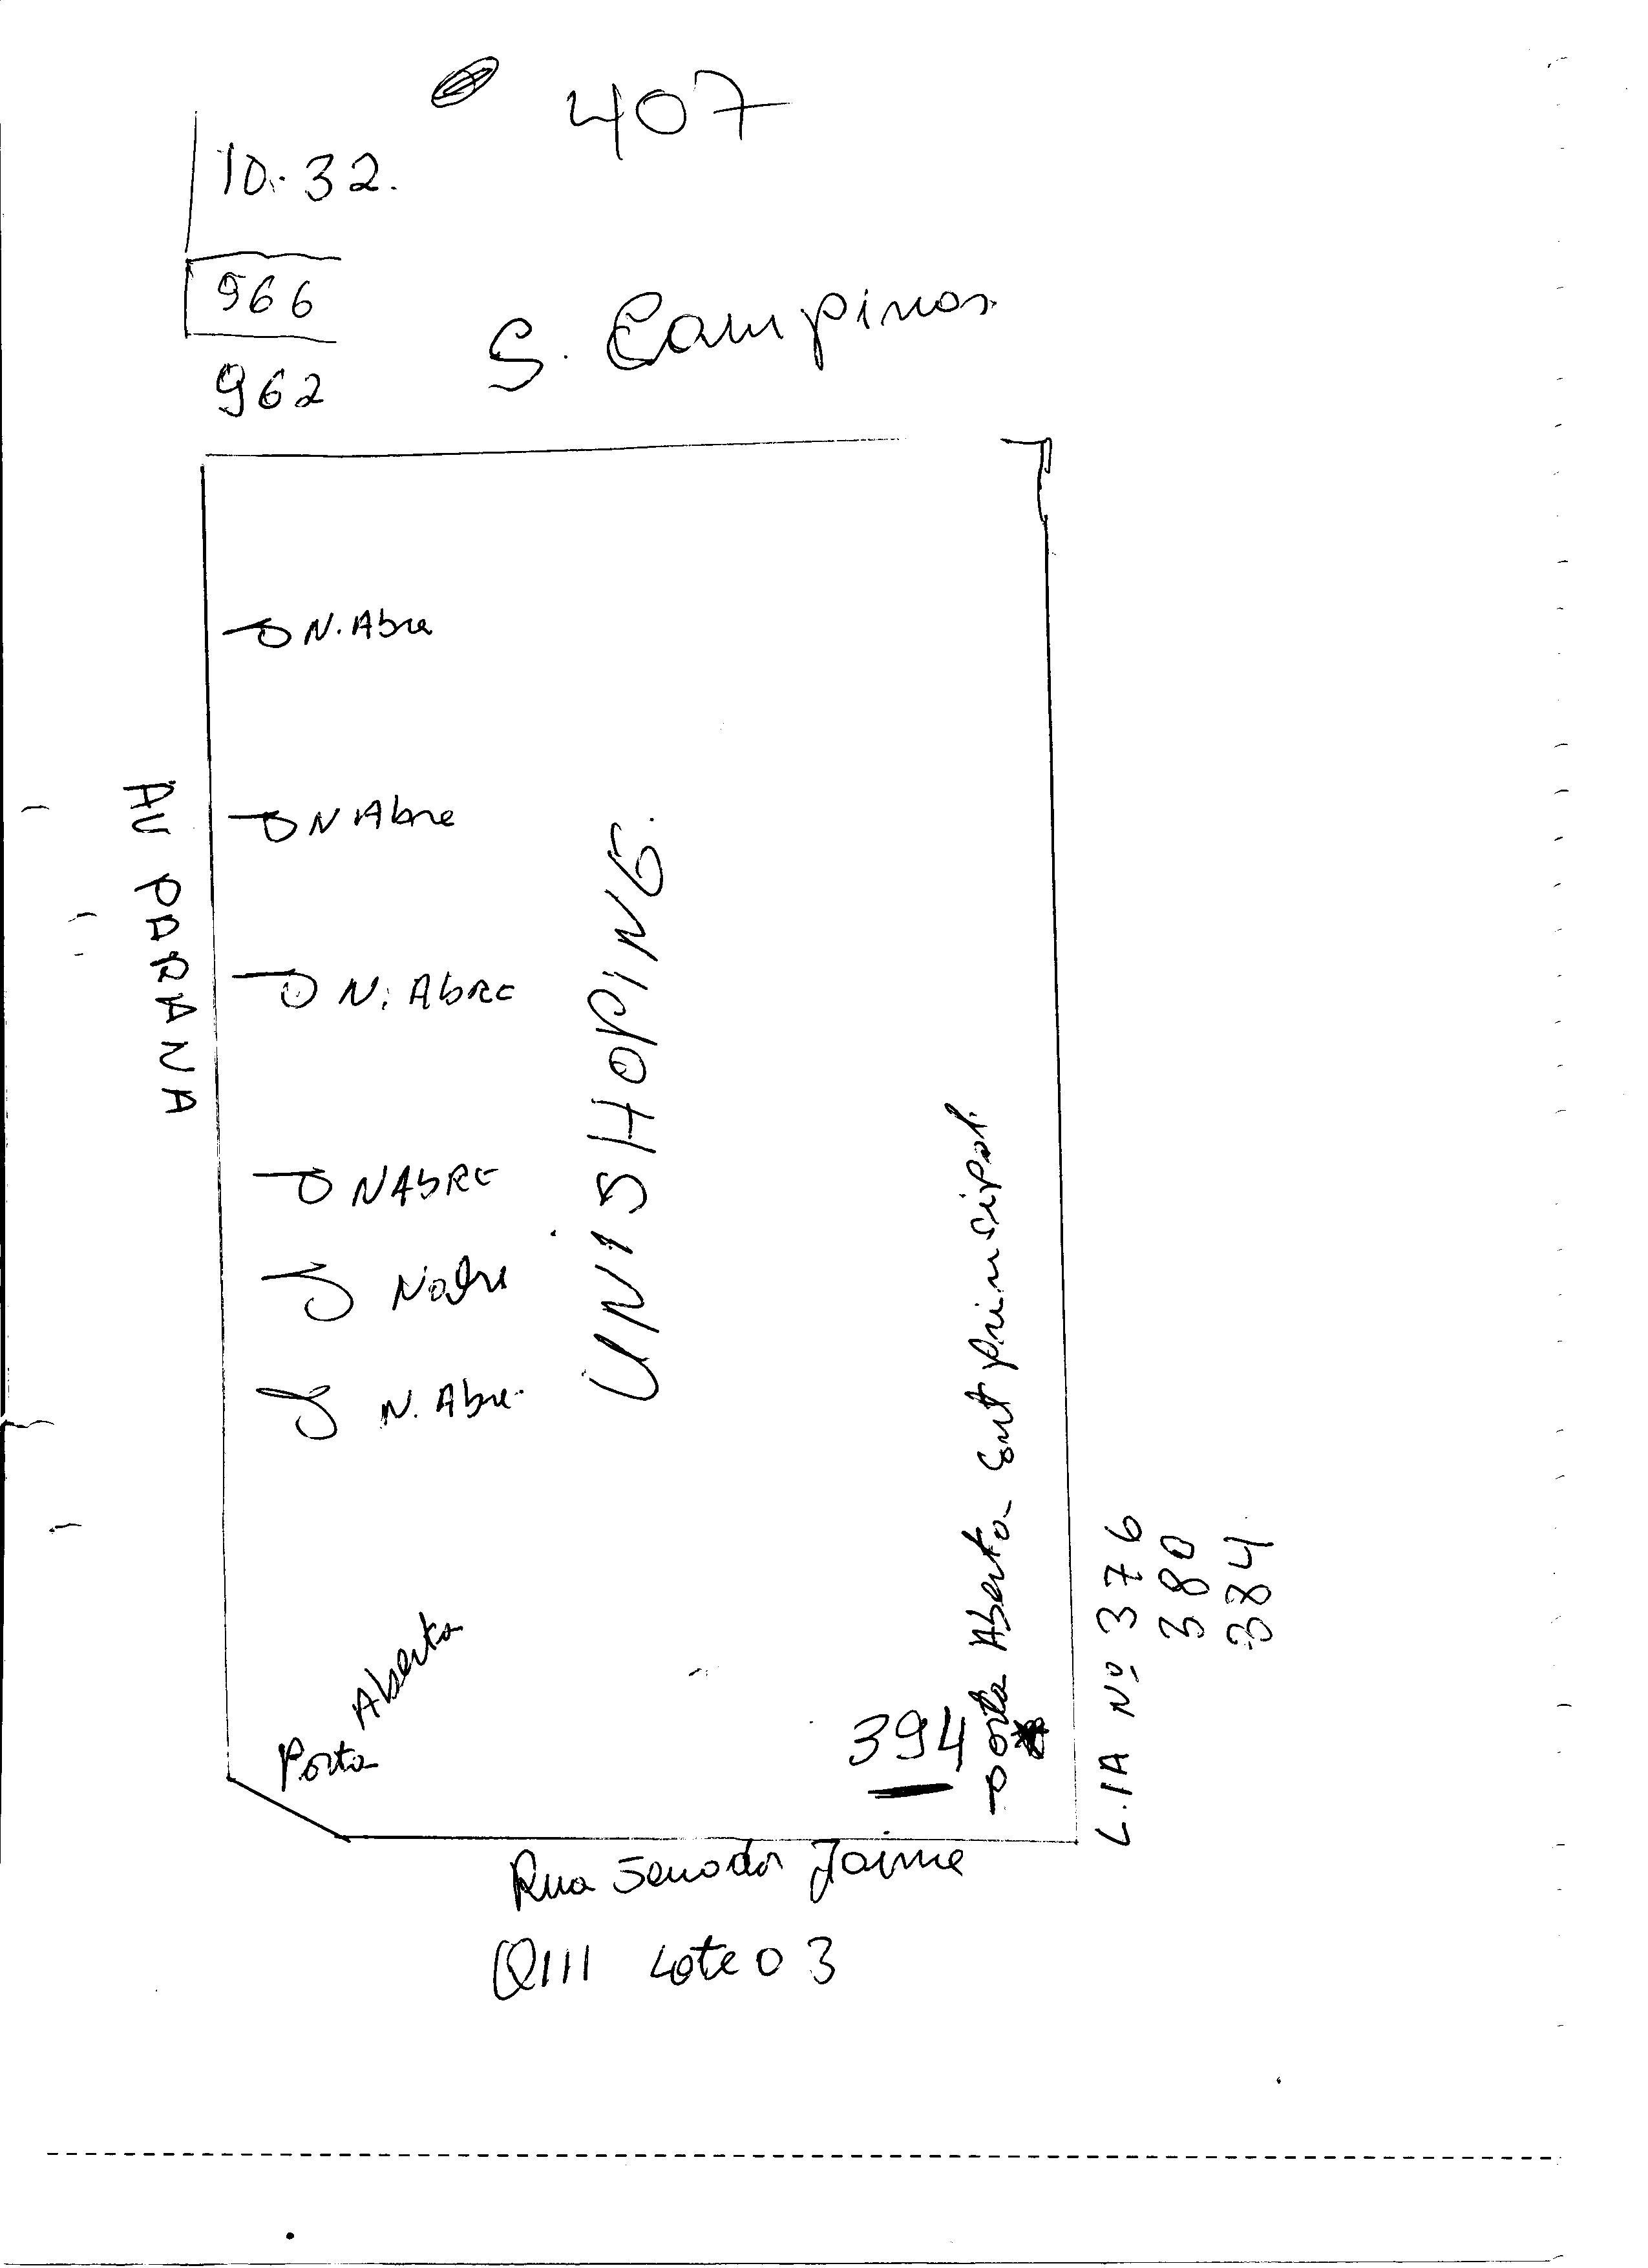 407
10.32.
966
962
S. Campinas
N. Abre
N Abre
AV PARANA
N. AbRE
NAbRE
Nabre
N. Abre
UNISHOPING.
Porta Aberta
394
Porta Aberta Ent prinsipal.
L.IA Nº 376
380
384
Rua Senador Jaime
Q111 Lote 03